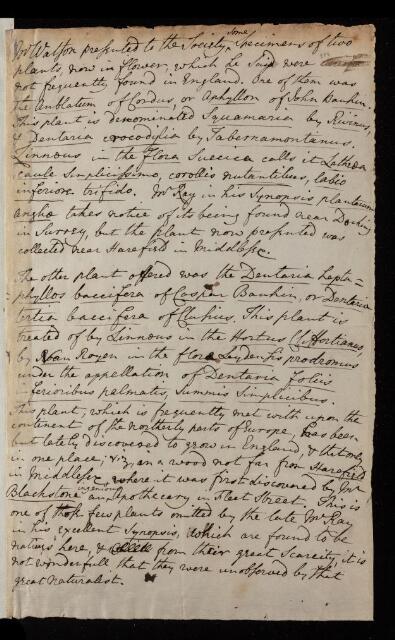 Mr Watson presented to the Society some Specimens of two
plants, now in flower, which he said were
not frequently found in England. One of them was
the Anblatum of Cordus, or Aphyllon of John Bauhin.
This plant is denominated Squamaria by Rivinus,
& Dentaria crocodylia by Tabernamontanus.
Linnous in the Flora Suecica calls it Lathræa
caule Simplicissimo, corollis nutantibus, labio
inferiore trifido. Mr Ray in his Synopsis plantarum
angliæ takes notice of its being found near Darking
in Surrey, but the plant now presented was
collected near Harefield in Middlesex.
The other plant offered was the Dentaria hepta=
phyllos baccifera of Caspar Bauhin, or Dentaria
tertia baccifera of Clusius. This plant is
treated of by Linnous in the Hortus Cliffortianus,
by Van Royen in the flora Leydensis prodromus
under the appellation of Dentaria foliis
inferioribus palmatis, Summis Simplicibus.
This plant, which is frequently met with upon the
continent of the northerly parts of Europe, has been
but lately discovered to grow in England, & that only
in one place; viz, in a wood not far from Harefield
in Middlesex, where it was first discovered by Mr
Blackstone an Apothecary in Fleet Street. This is
one of those few plants omitted by the late Mr Ray
in his excellent Synopsis, which are found to be
natives here, & from their great Scarcity, it is
not wonderfull that they were unobserved by that
great naturalist.